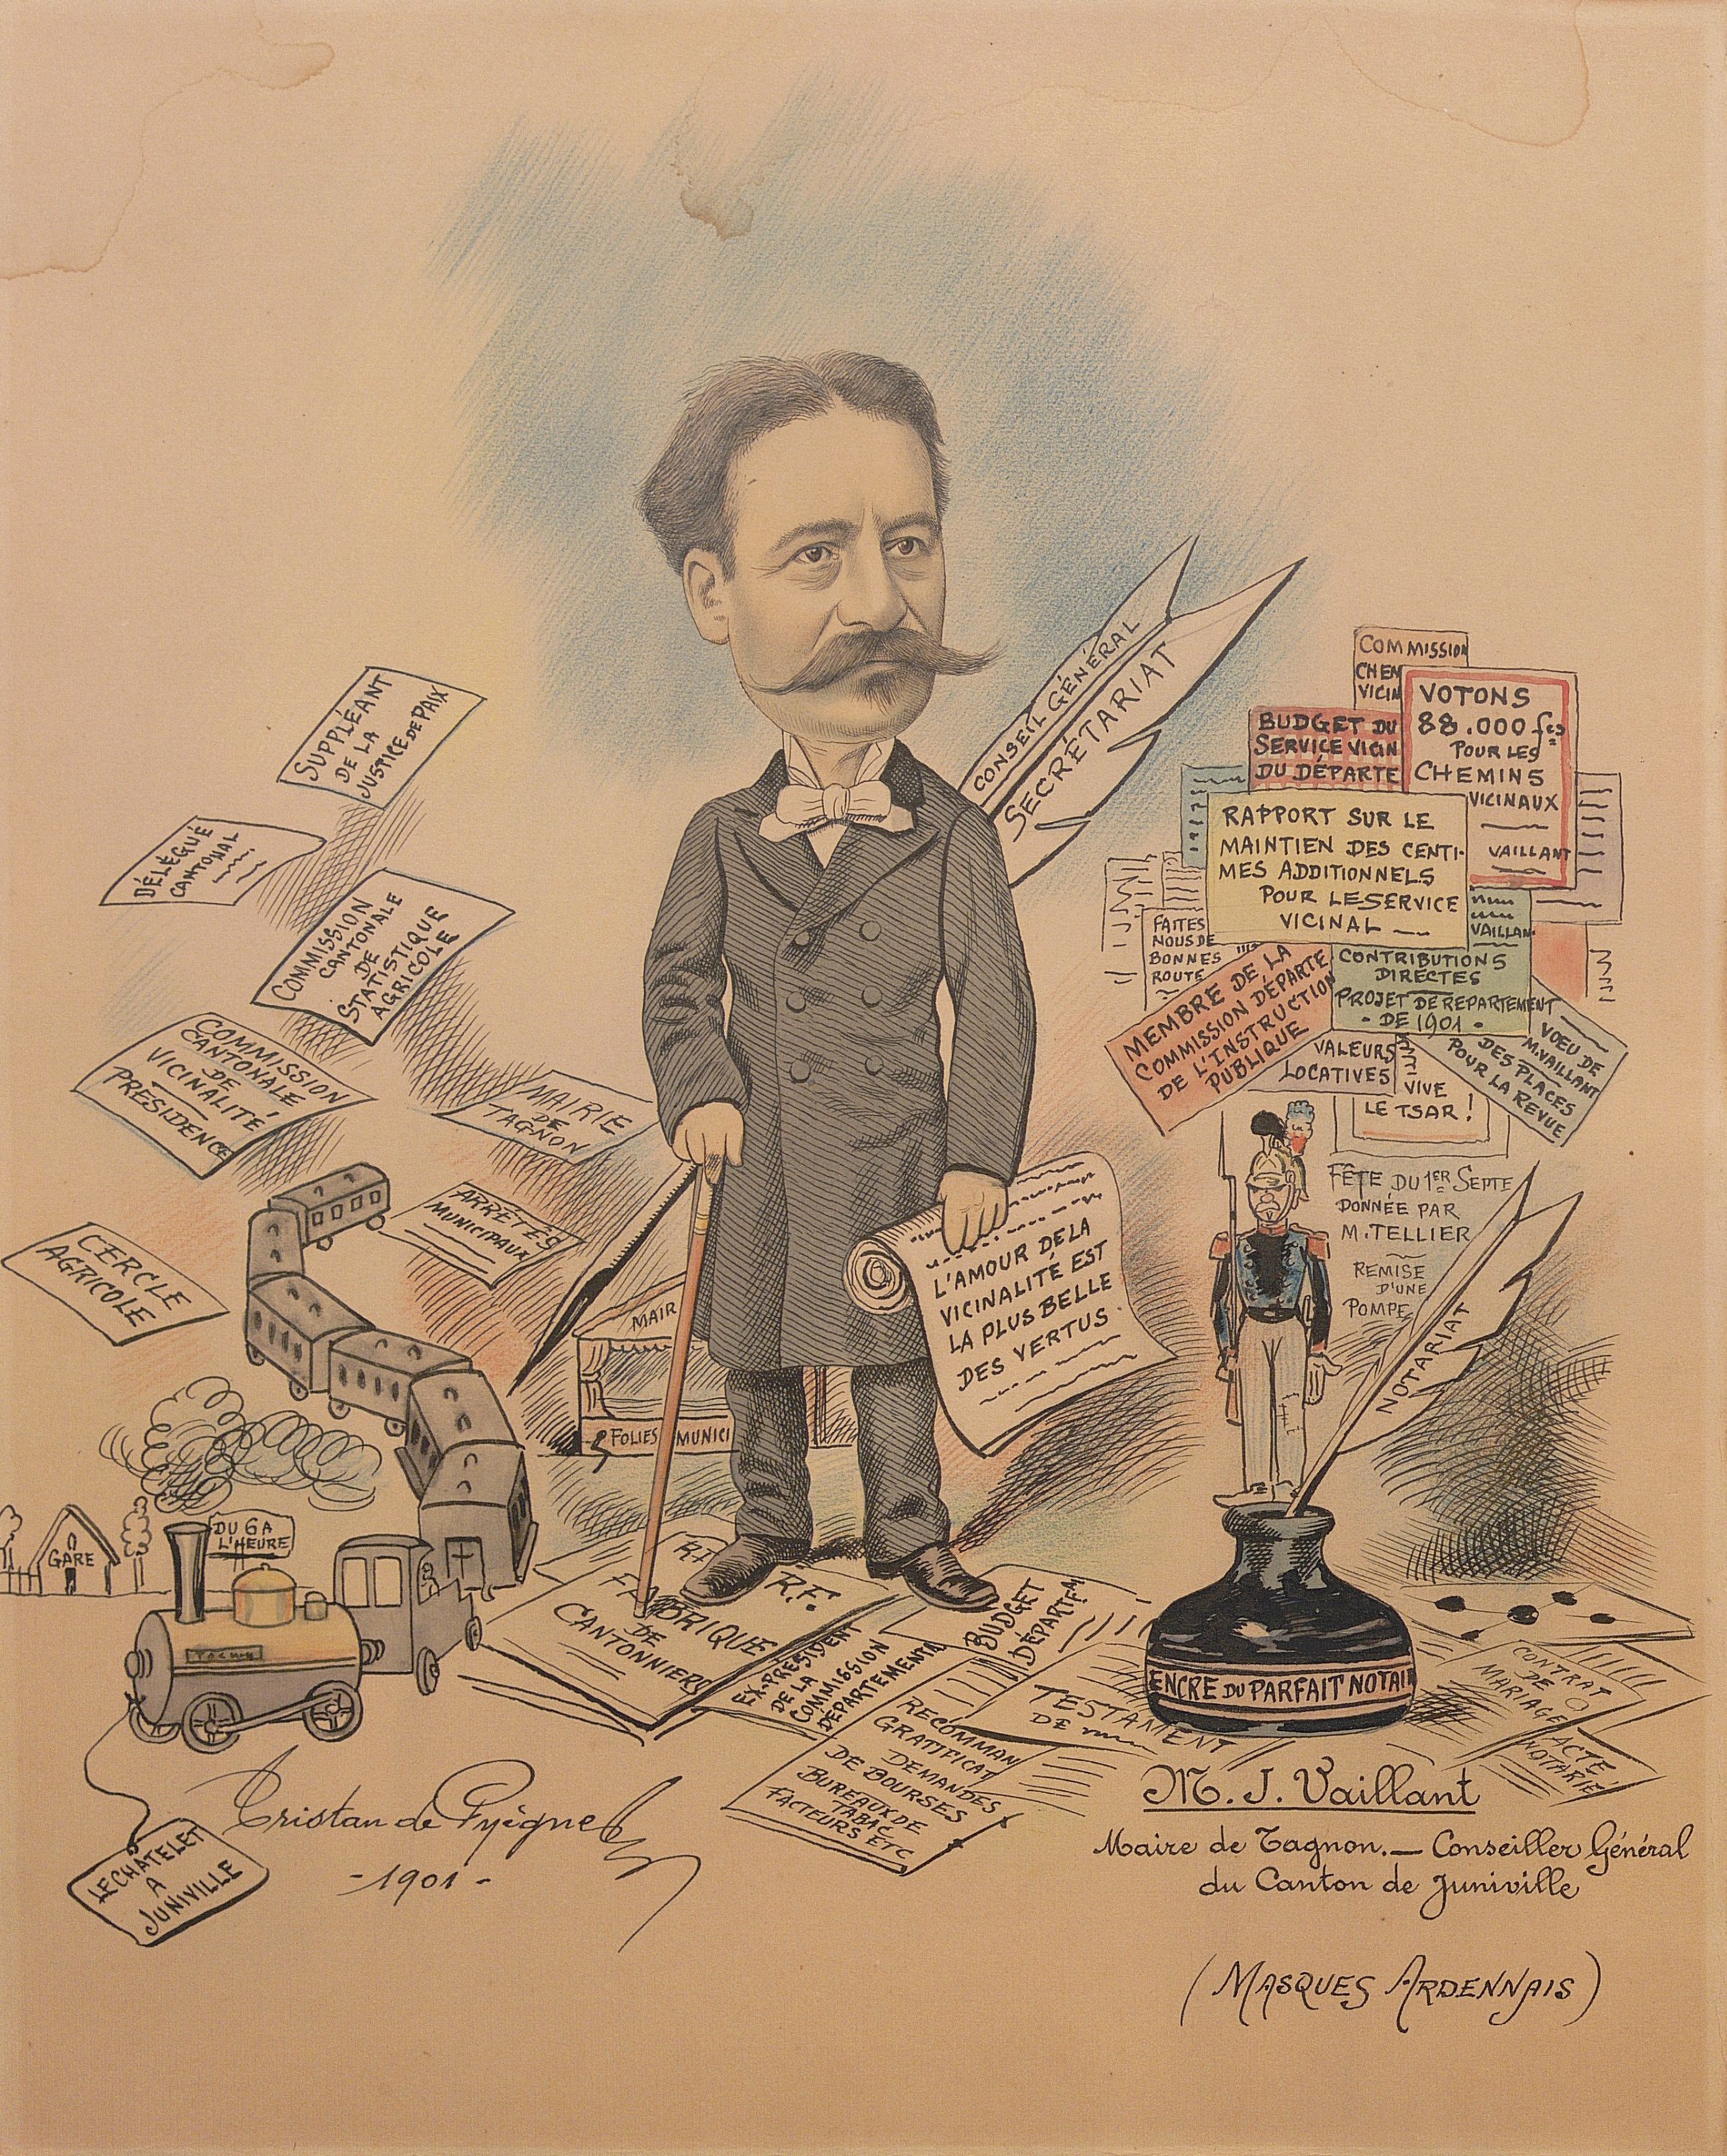 SUPPLÉANT
DE LA
JUSTICE DE PAIX
DÉLÉGUÉ
CANTONAL
COMMISSION
CANTONALE
DE
STATISTIQUE
AGRICOLE
COMMISSION
CANTONALE
DE
VICINALITÉ
PRÉSIDENCE
MAIRIE
DE
TAGNON
ARRÊTÉS
MUNICIPAUX
CERCLE
AGRICOLE
CONSEIL GÉNÉRAL
SECRÉTARIAT
COMMISSION
CHEM
VICIN
VOTONS
88.000 fcs
POUR LES
CHEMINS
VICINAUX
VAILLANT
BUDGET DU
SERVICE VICIN
DU DÉPARTE
RAPPORT SUR LE
MAINTIEN DES CENTI-
MES ADDITIONNELS
POUR LE SERVICE
VICINAL
VAILLAN
FAITES
NOUS DE
BONNES
ROUTE
MEMBRE DE LA
COMMISSION DÉPARTE
DE L'INSTRUCTION
PUBLIQUE
CONTRIBUTIONS
DIRECTES
PROJET DE REPARTEMENT
- DE 1901 -
VALEURS
LOCATIVES
VOEU DE
M. VAILLANT
DES PLACES
POUR LA REVUE
VIVE
LE TSAR !
FÊTE DU 1ER SEPTE
DONNÉE PAR
M. TELLIER
REMISE
D'UNE
POMPE
NOTARIAT
L'AMOUR DE LA
VICINALITÉ EST
LA PLUS BELLE
DES VERTUS
MAIR
FOLIES MUNICI
GARE
DU 6 A
L'HEURE
R.F.
FABRIQUE
DE
CANTONNIERS
EX-PRÉSIDENT
DE LA
COMMISSION
DÉPARTEMENTA
BUDGET
DÉPARTEM
RECOMMAN
GRATIFICAT
DEMANDES
DE BOURSES
BUREAUX DE
TABAC
FACTEURS ETC
TESTAMENT
DE
ENCRE DU PARFAIT NOTAIR
CONTRAT
DE
MARIAGE
ACTE
NOTARIÉ
LE CHATELET
A
JUNIVILLE
Tristan de Pyègne
- 1901 -
M. J. Vaillant
Maire de Tagnon. — Conseiller Général
du Canton de Juniville
(MASQUES ARDENNAIS)